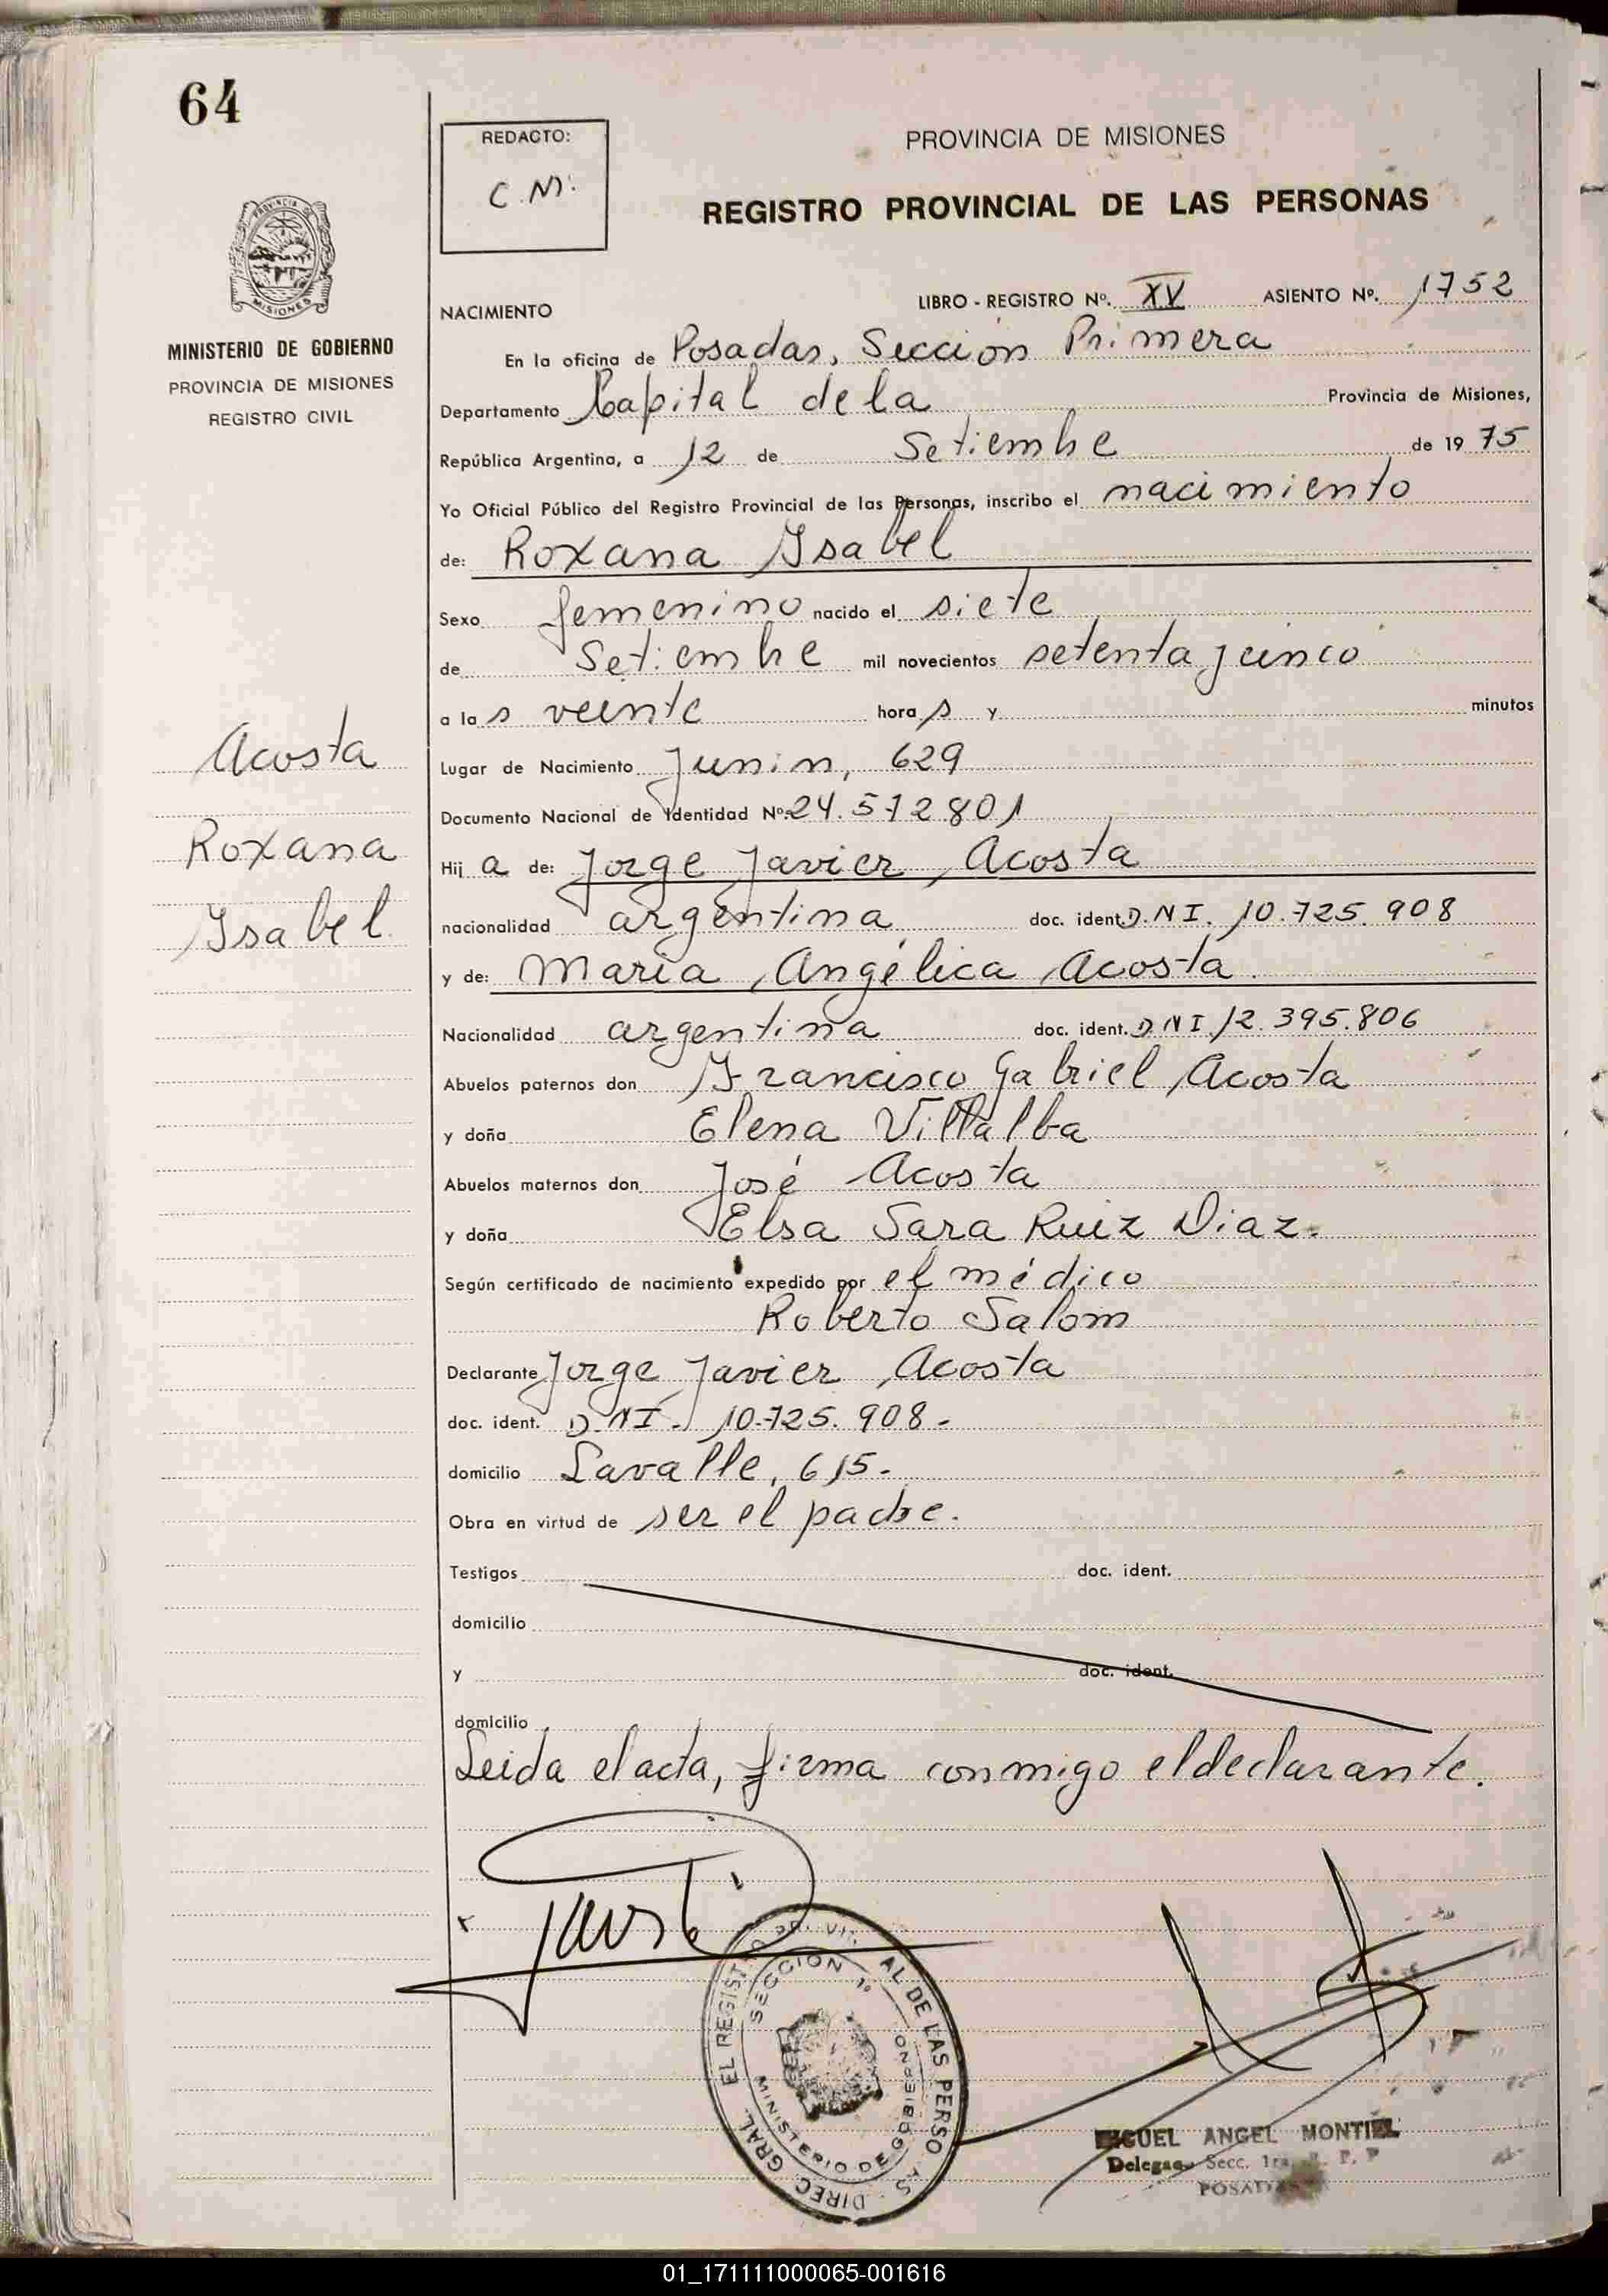 64
REDACTO:
C.M.
PROVINCIA DE MISIONES
REGISTRO PROVINCIAL DE LAS PERSONAS
MINISTERIO DE GOBIERNO
PROVINCIA DE MISIONES
REGISTRO CIVIL
NACIMIENTO
LIBRO - REGISTRO Nº. XV ASIENTO Nº. 1752
En la oficina de Posadas, Sección Primera
Departamento Capital de la Provincia de Misiones,
República Argentina, a 12 de Setiembre de 19 75
Yo Oficial Público del Registro Provincial de las Personas, inscribo el nacimiento
de: Roxana Ysabel
Sexo femenino nacido el siete
de Setiembre mil novecientos setenta y cinco
a la s veinte hora s y minutos
Lugar de Nacimiento Junin, 629
Documento Nacional de Identidad Nº 24.572.801
Hij a de: Jorge Javier Acosta
nacionalidad argentina doc. ident. D.N.I. 10.725.908
y de: María Angélica Acosta.
Nacionalidad argentina doc. ident. D.N.I. 12.395.806
Abuelos paternos don Francisco Gabriel Acosta
y doña Elena Villalba
Abuelos maternos don José Acosta
y doña Elsa Sara Ruiz Diaz.
Según certificado de nacimiento expedido por el médico
Roberto Salom
Declarante Jorge Javier Acosta
doc. ident. D.N.I. 10.725.908.-
domicilio Lavalle, 615.-
Obra en virtud de ser el padre.
Testigos doc. ident.
domicilio
y doc. ident.
domicilio
Leida el acta, firma conmigo el declarante.
Acosta
Roxana
Ysabel
DIREC. GRAL. DE LAS
SECCION 1º
MINISTERIO DE GOBIERNO
ANGEL MONTIEL
Secc. 1ra.
01_171111000065-001616